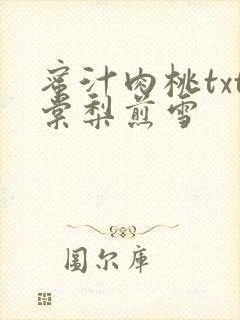 蜜汁肉桃txt
棠梨煎雪
图尔库